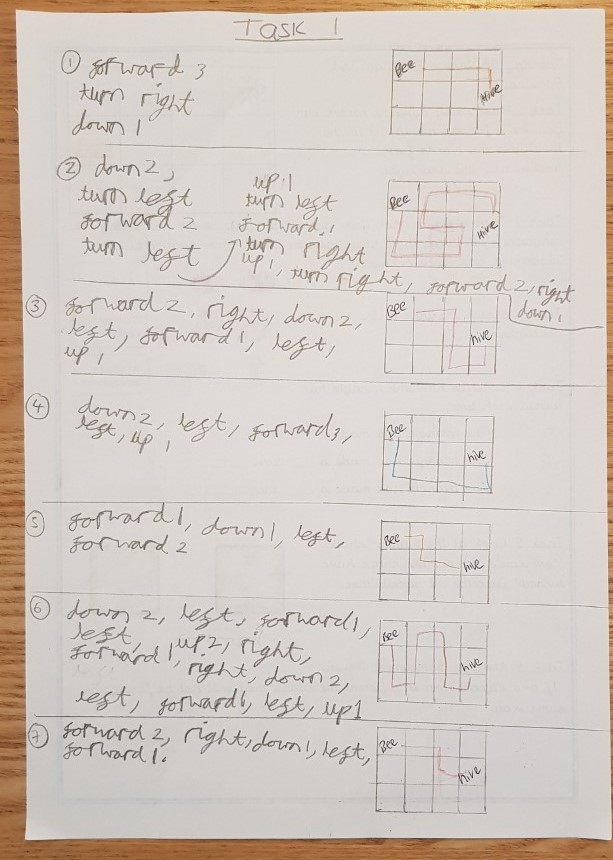 Task 1
① forward 3
turn right
down 1
Bee
Hive
② down 2,
turn left
forward 2
turn left
up 1
turn left
forward 1
turn right
up 1, turn right, forward 2, right
down 1
Bee
Hive
③ forward 2, right, down 2,
left, forward 1, left,
up 1
Bee
hive
④ down 2, left, forward 3,
left, up 1
Bee
hive
⑤ forward 1, down 1, left,
forward 2
Bee
hive
⑥ down 2, left, forward 1,
left, up 2, right,
forward 1, right, down 2,
left, forward 1, left, up 1
Bee
hive
⑦ forward 2, right, down 1, left,
forward 1.
Bee
hive